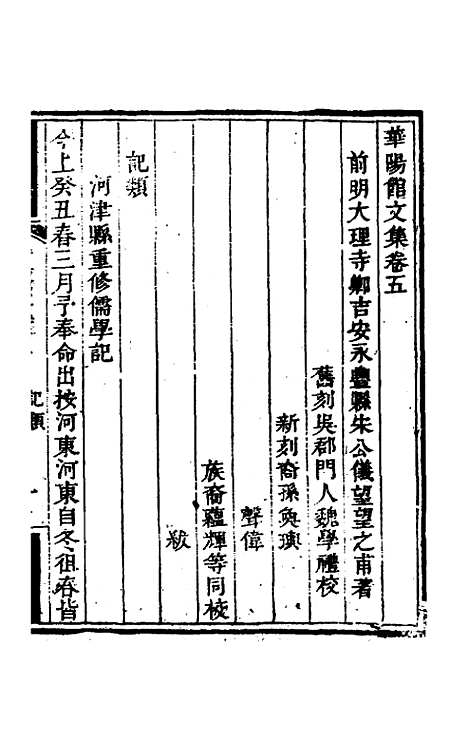 華陽館文集卷五
前明大理寺卿吉安永豐縣宋公儀望望之甫著
舊刻吳郡門人魏學禮校
新刻裔孫奐璵
聲偉
族裔蘊輝等同校
黻
記類
河津縣重修儒學記
今上癸丑春三月予奉命出按河東河東自冬徂春皆
記類